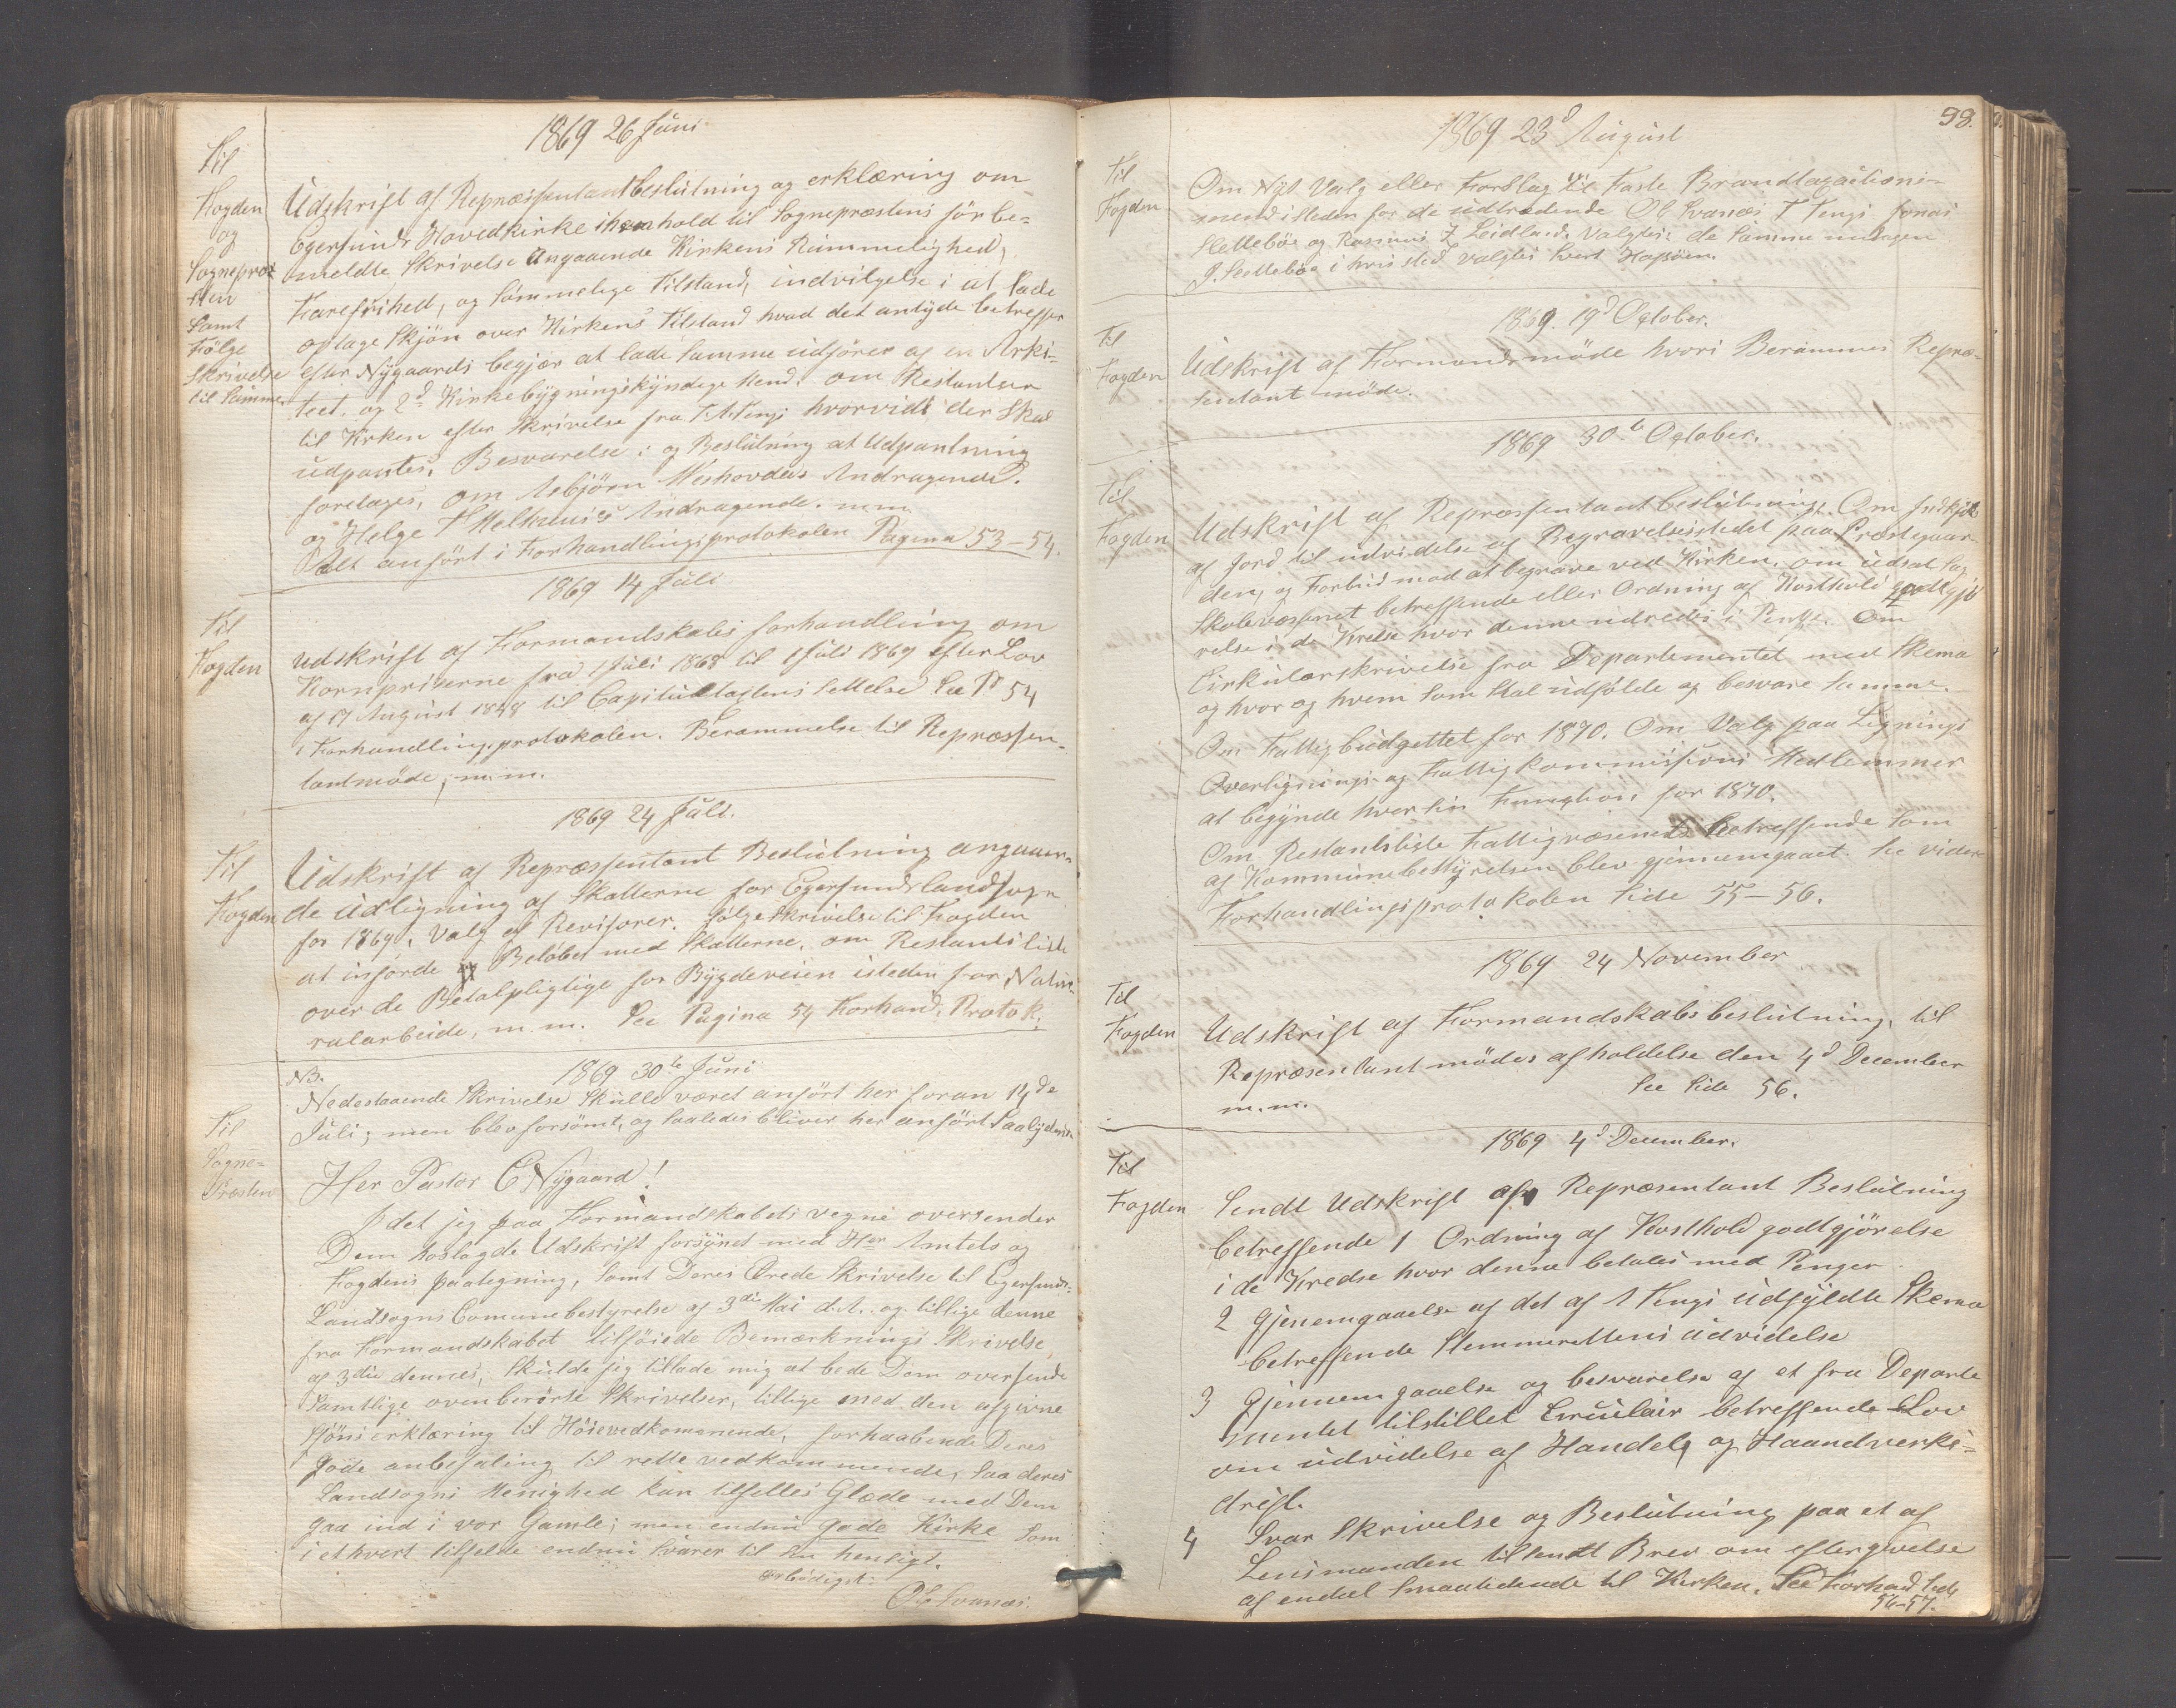 1869 26 Juni
Til
Fogden
og
Sognepræ-
sten
Samt
Følge
Skrivelse
til Samme.
Udskrift af Repræssentantbeslutning og erklæring om
Egersunds Hovedkirke i henhold til Sognepræstens förbe-
meldte Skrivelse Angaaende Kirkens Rummelighed,
Farefrihed, og sömmelige Tilstand, indvilgelse i at lade
optage Skjön over Kirkens Tilstand hvad det antyde betreffer
efter Nÿgaards begjær at lade Samme udförer af en Arki-
tect. og 2d Kirkebÿgningskÿndige Mend. om Restantser
til Kirken efter Skrivelse fra T. A. Tengs hvorvidt der Skal
udpantes. Besvarelse: og Beslutning at Udpantning
foretages, om Asbjörn Meshovdes Andragende.
og Helge T Malthuus's Andragende. m.m
Alt anfört i Forhandlingsprotokolen Pagina 53–54.
1869 14 Juli
Til
Fogden
Udskrift af Formandskabs forhandling om
Kornpriserne fra 1 Juli 1868 til 1 Juli 1869 efter Lov
af 17 August 1848 til Capitulstaxtens settelse See P 54
i Forhandlingsprotokolen. Berammelse til Repræssen-
tantmöde, m.m.
1869 24 Juli.
Til
Fogden
Udskrift af Repræssentant Beslutning angaaen-
de udligning af Skatterne for Egersunds landsogn
for 1869, Valg af Revisorer. fölgeskrivelse til Fogden
at införde Belöbet med Skatterne, om Restantsliste
over de Betalpligtige for Bÿgdeveien isteden for Natu-
ralarbeide, m.m. See Pagina 54 Forhand. Protok.
1869 30te Juni
NB.
Nedestaaende Skrivelse Skulle været anfört her foran 14de
Juli; men blev forsömt, og saaledes bliver her anfört Saalÿdende
Til
Sogne-
Præsten
Her Pastor C Nÿgaard!
I det jeg paa Formandskabets vegne oversender
Dem hoslagde Udskrift forsÿnet med Her Amtets og
Fogdens paategning, Samt Deres Ærede Skrivelse til Egersunds
Landsogns Comunebestyrelse af 3die Mai d.A. og tillige denne
fra Formandskabet tilföiede Bemærknings Skrivelse
af 3die dennes, Skulde jeg tillade mig at bede Dem oversende
Samtlige ovenberörte Skrivelser, tillige med den afgivne
Skjöns erklæring til Höievedkomenende, forhaabende Deres
gode anbefaling til rette vedkommende, saa deres
Landsogns Menighed kan tilfelles Glæde med Dem
gaa ind i vor Gamle; men endnu gode Kirke som
i ethvert tilfelde endnu svarer til sin hensigt.
ærbödigst:
O E Svanæs.
98.
1869 23d August
Til
Fogden
Om Nÿt Valg eller Forslag til Faste Brandtaxations-
mend isteden for de udtrædende Ol Svanæs, T Tengs Jonas
Slettebøe og Rasmus Z Leidland. Valgtes de Samme undtagen
J. Slettebøe i hvis sted valgtes Sivert Hafsöen.
1869. 19d October.
Til
Fogden
Udskrift af Formandsmöde hvori Berammes Repræ-
sentant möde.
1869 30te October.
Til
Fogden
Udskrift af Repræssentantbeslutning. Om Indkjöb
af Jord til udvidelse af Begravelsesstedet paa Præstegaar-
den, og Forbud mod at begrave ved Kirken. om udsat Sag
Skolevæssenet betreffende eller Ordning af Kosthold godtgjö-
relse i de Kredse hvor denne udredes i Penge. Om
Cirkulærskrivelse fra Departementet med Skema
og hvor og hvem som skal udfölde og besvare Samme.
Om Fattigbudgettet for 1870. Om Valg paa Lignings
Overlignings- og Fattigkommissions Medlemmer
at begÿnde hver sin Funqtion for 1870.
Om Restantsliste Fattigvæsenets betreffende som
af Kommunebestyrelsen blev gjennemgaaet. See videre
Forhandlingsprotokolen Side 55–56.
1869 24 November
Til
Fogden
Udskrift af Formandskabsbeslutning, til
Repræsentantmödes afholdelse den 4d December
m.m. See Side 56.
1869 4d December.
Til
Fogden
Sendt Udskrift af Repræsentant Beslutning
betreffende 1 Ordning af Kosthold godtgjörelse
i de Kredse hvor denne betales med Penger
2 Gjenemgaaelse af det af A Tengs udfÿldte Skema
betreffende Stemmerettens udvidelse
3 Gjennemgaaelse og besvarelse af et fra Departe
mentet tilstillet Circulair betreffende Lov
om udvidelse af Handels og Haandverks-
drift.
4 Svar Skrivelse og Beslutning paa et af
Lensmanden tilsendt Brev om eftergivelse
af endeel Smaatiende til Kirken. See Forhand Side
56–57.